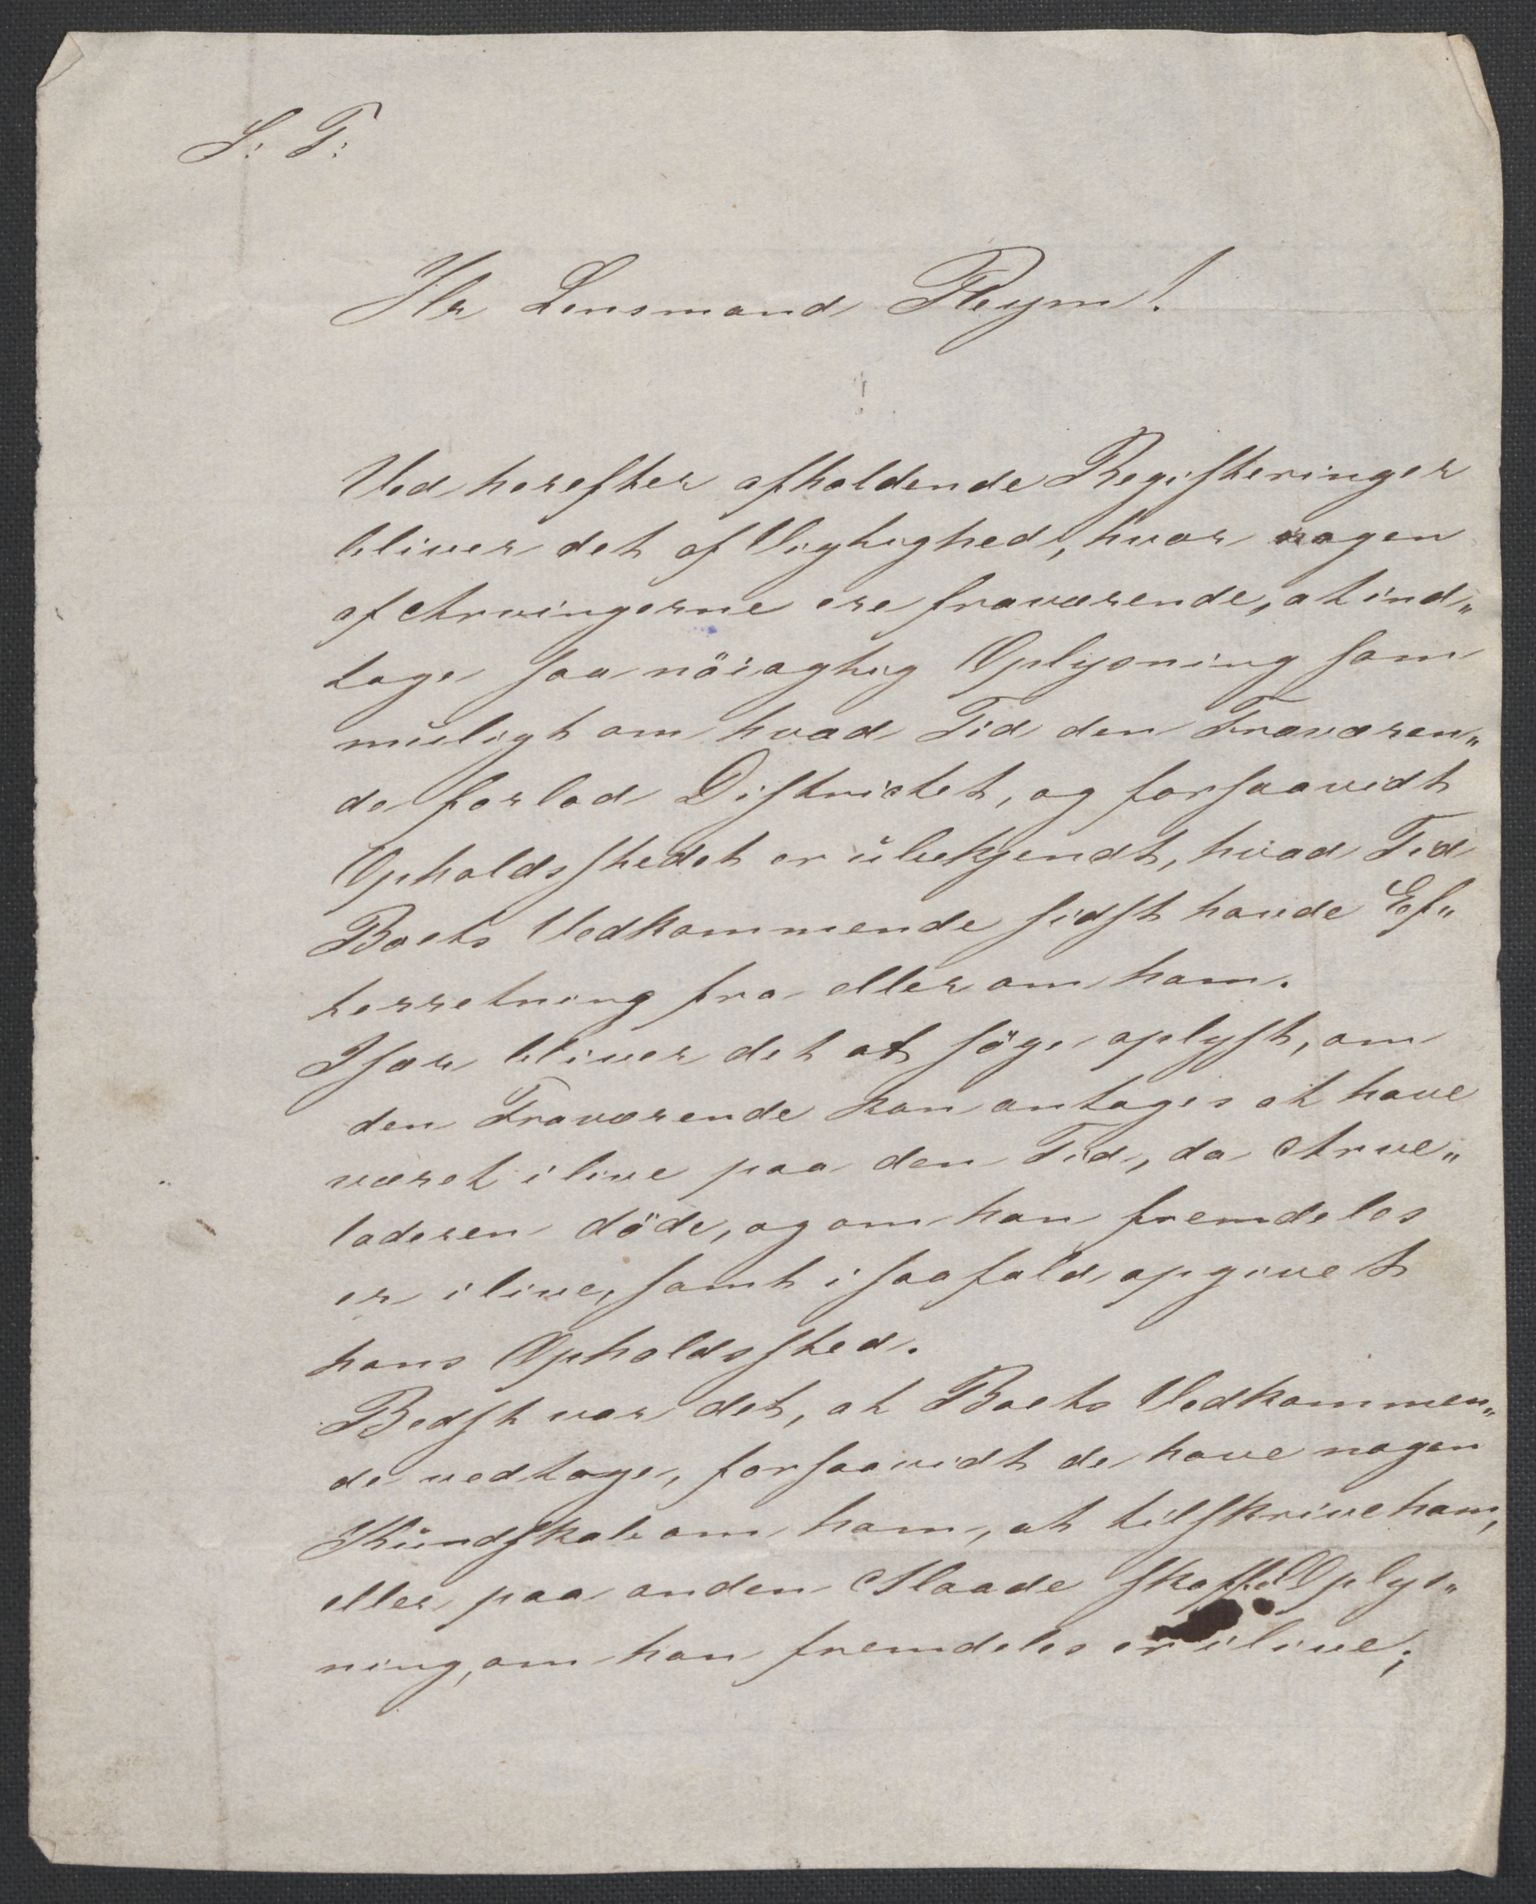 S: T:
Hr Lensmand Fleym!
Ved herefter afholdende Registeringer
bliver det af Vigtighed, hvor nogen
af Arvingerne ere fraværende, at ind„
tage saa nöiagtig Oplysning som
muligt om hvad Tid den Fraværen„
de forlod Districtet, og forsaavidt
Opholdsstedet er ubekjendt, hvad Tid
Boets Vedkommende sidst havde Ef„
terretning fra eller om ham.
Især bliver det at söge oplyst, om
den Fraværende kan antages at have
været ilive paa den Tid, da Arve„
laderen döde, og om han fremdeles
er ilive, samt i saafald opgivet
hans Opholdssted.
Bedst var det, at Boets Vedkommen„
de vedtage, forsaavidt de have nogen
Kundskab om ham, at tilskrive ham,
eller paa anden Maade skaffe Oplys„
ning, om han fremdeles er ilive;